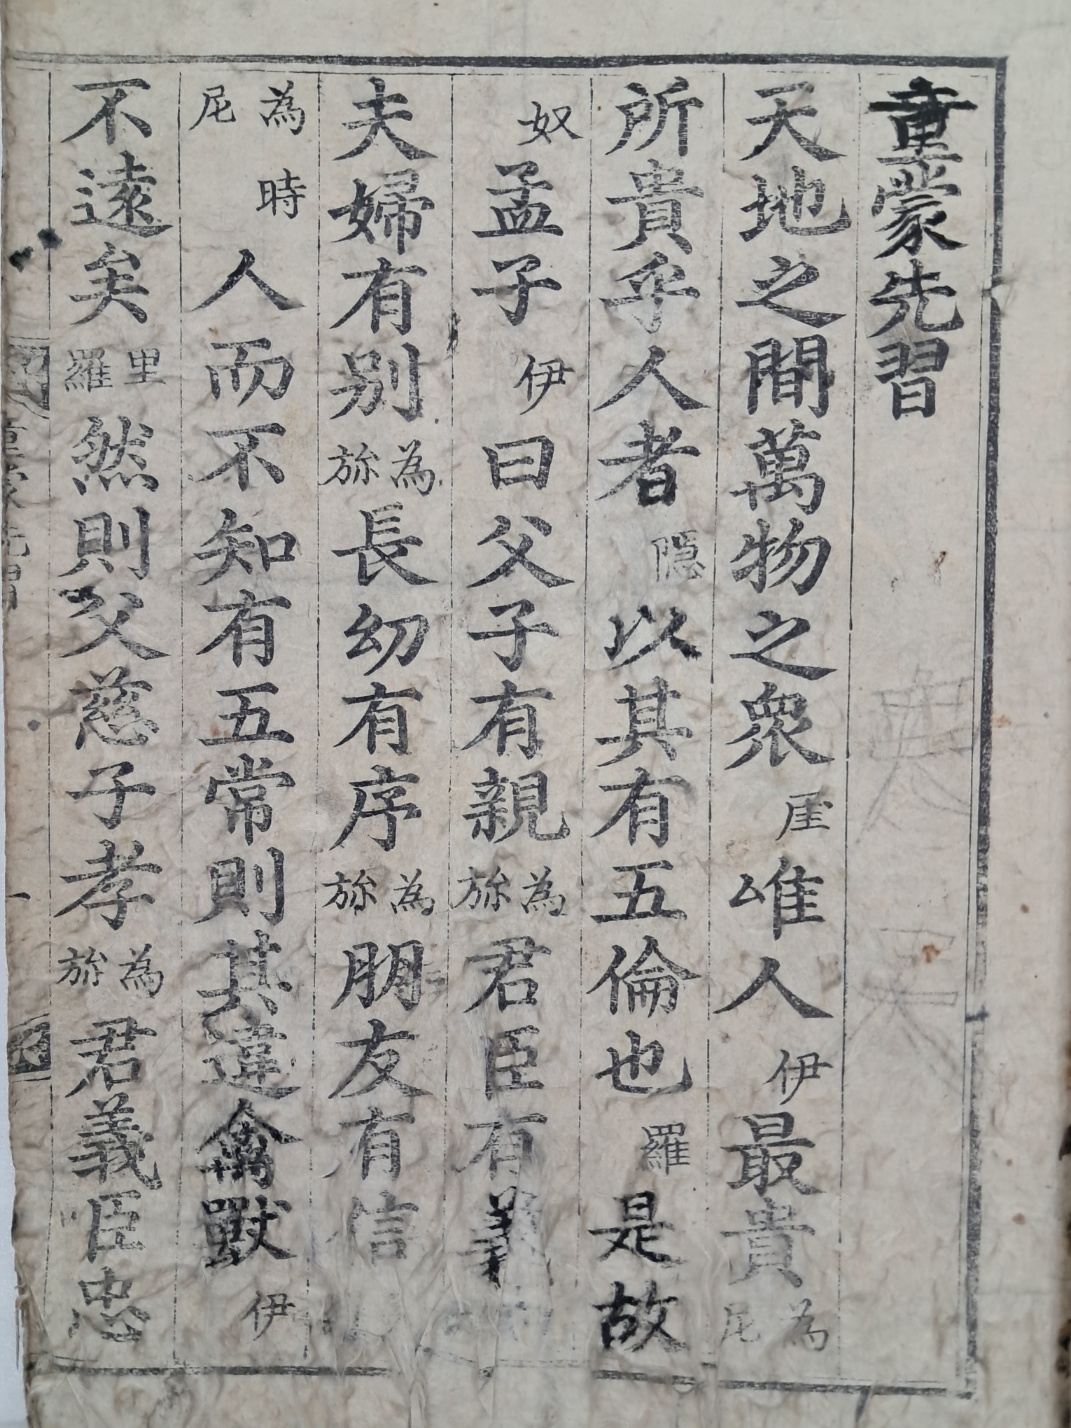 童蒙先習
天地之間萬物之衆厓唯人伊最貴為尼
所貴乎人者隱以其有五倫也羅是故
奴孟子伊曰父子有親為旀君臣有義
夫婦有別為旀長幼有序為旀朋友有信
為尼時人而不知有五常則其違禽獸伊
不遠矣里羅然則父慈子孝為旀君義臣忠